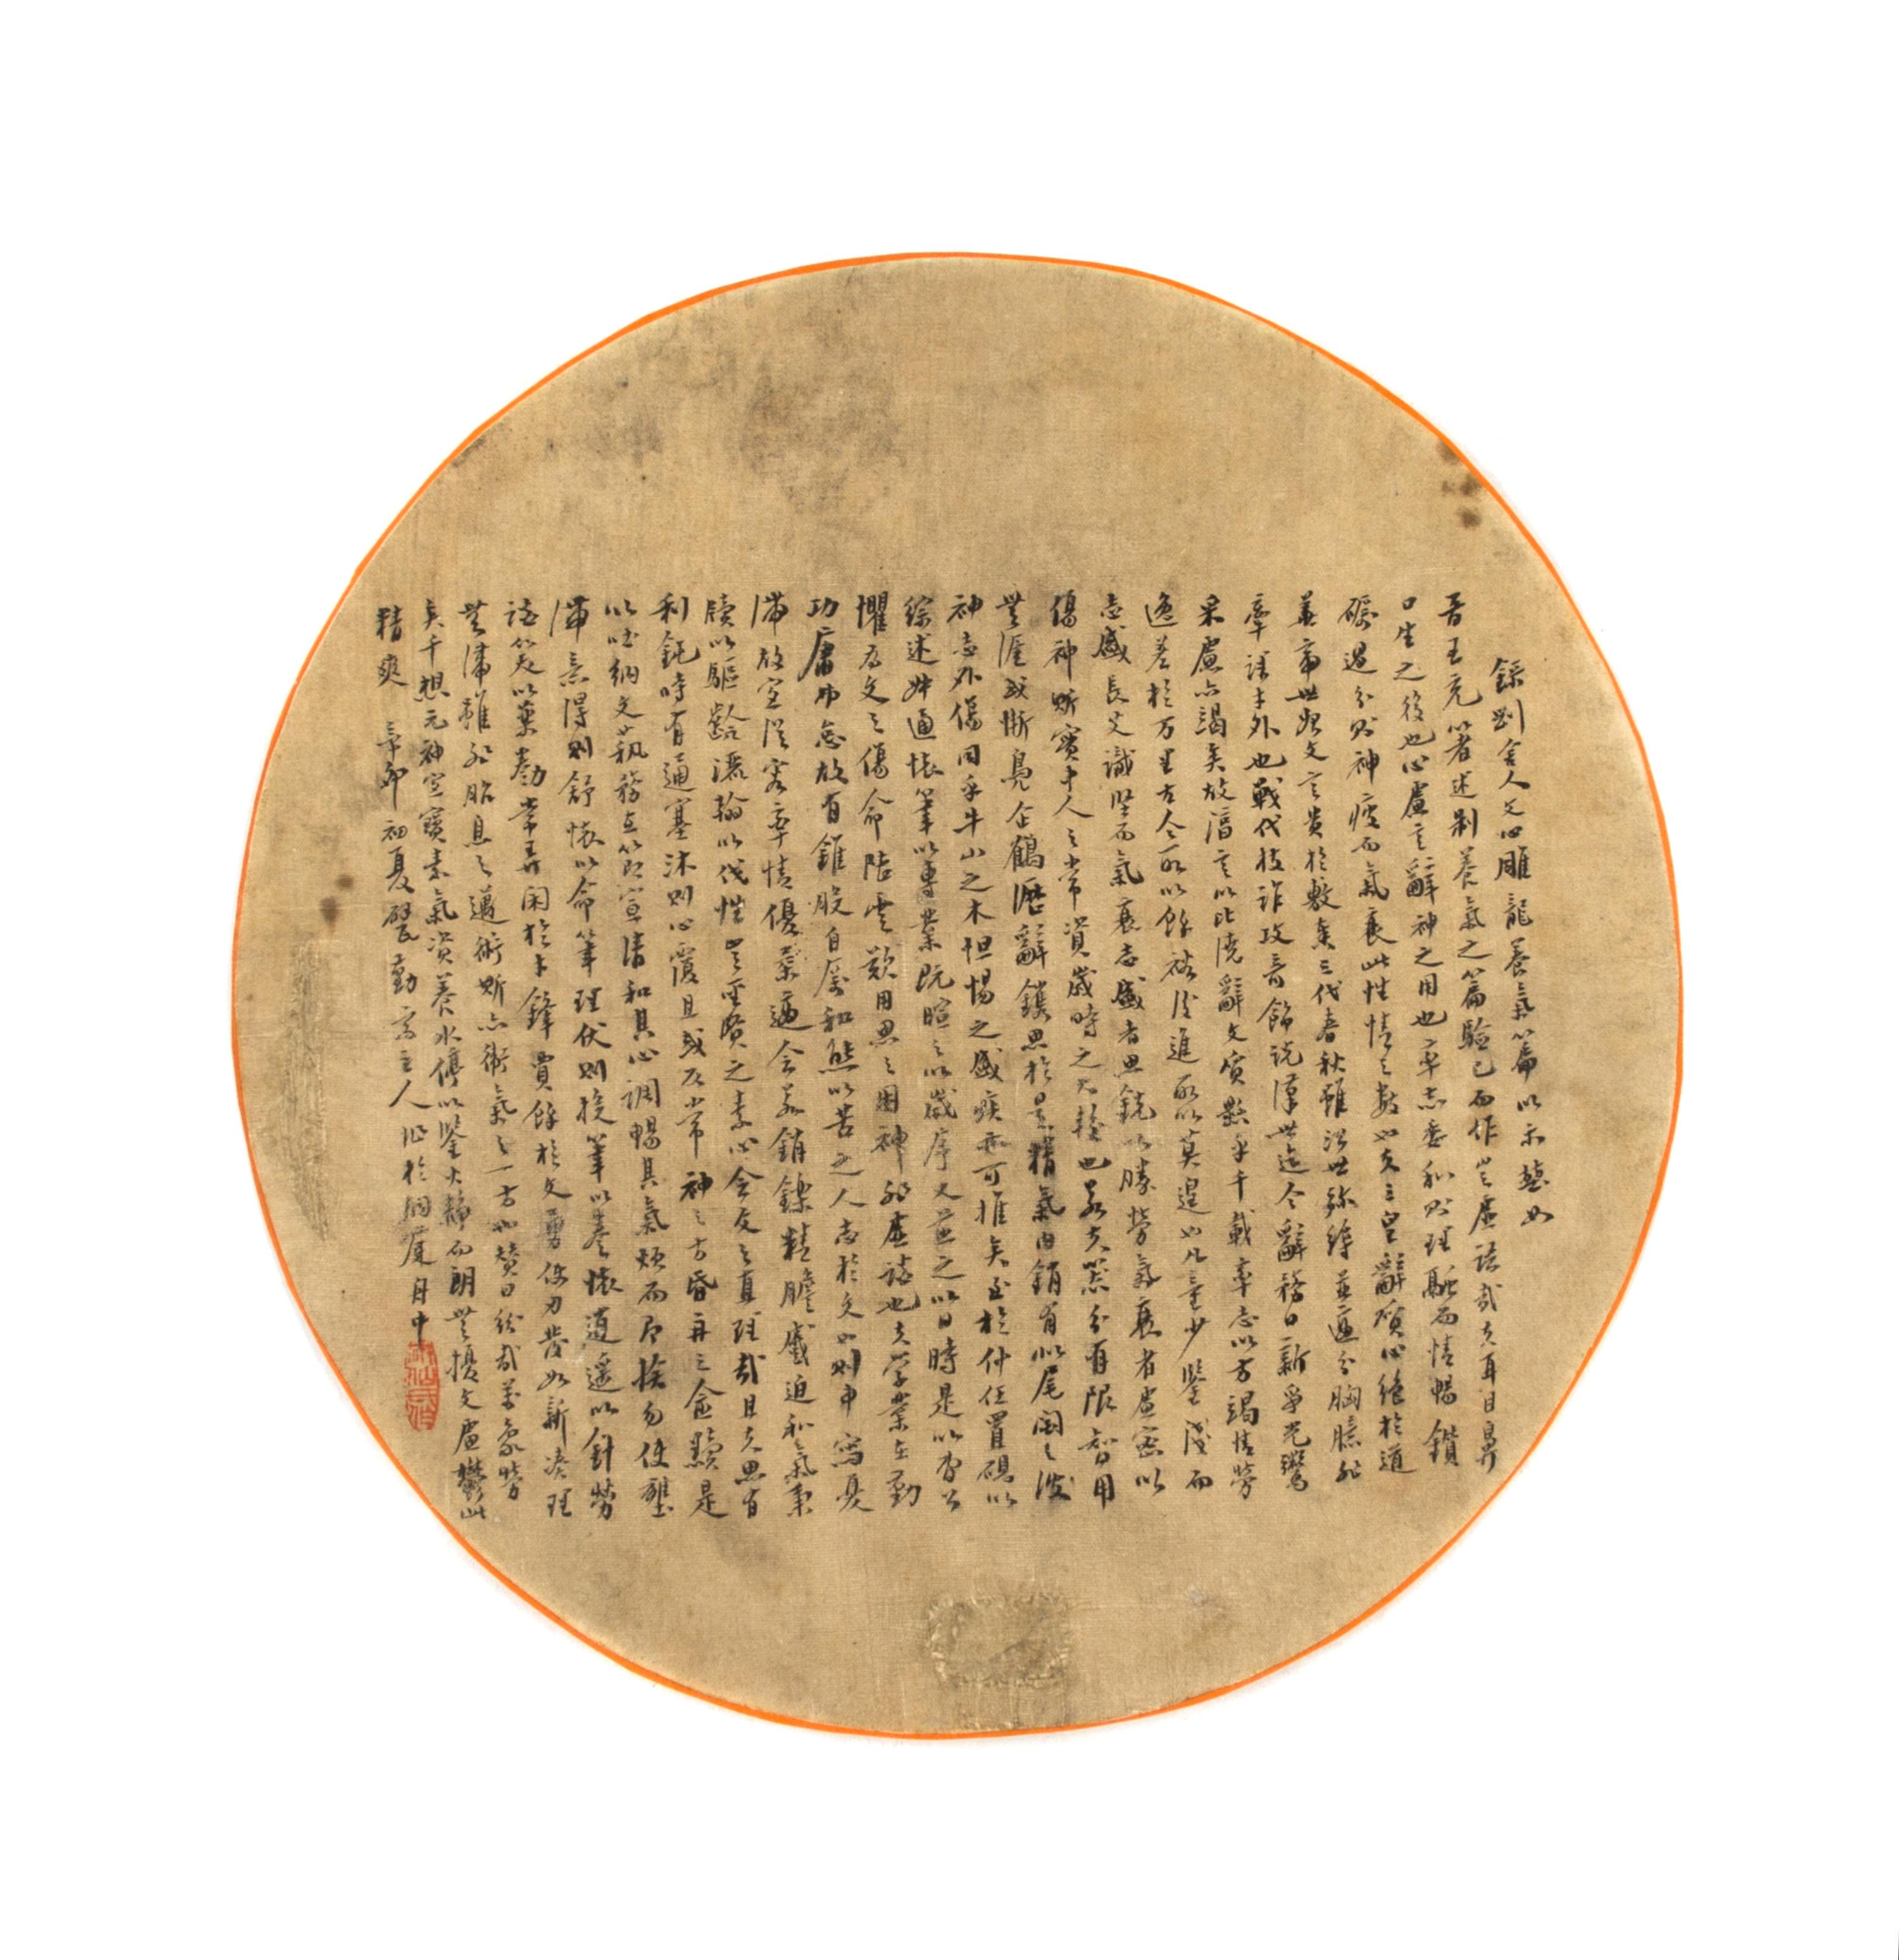 錄劉舍人文心雕龍養氣篇以示慈如
昔王充著述制養氣之篇驗己而作豈虛語哉夫耳目鼻
口生之役也心慮言辭神之用也率志委和則理融而情暢鑽
礪過分則神疲而氣衰此性情之數也夫三皇辭質心絕於道
華帝世始文言貴於敷奏三代春秋雖沿世彌縟並適分胸臆非
牽課才外也戰代枝詐攻奇飾說漢世迄今辭務日新爭光鬻
采慮亦竭矣故淳言以比澆辭文質懸乎千載率志以方竭情勞
逸差於萬里古人所以餘裕後進所以莫遑也凡童少鑒淺而
志盛長艾識堅而氣衰志盛者思銳以勝勞氣衰者慮密以
傷神斯實中人之常資歲時之大較也若夫器分有限智用
無涯或慚鳧企鶴瀝辭鐫思於是精氣內銷有似尾閭之波
神志外傷同乎牛山之木怛惕之盛疾亦可推矣至於仲任置硯以
綜述叔通懷筆以專業既暄之以歲序又煎之以日時是以曹公
懼為文之傷命陸雲歎用思之困神非虛談也夫學業在勤
功庸弗怠故有錐股自厲和熊以苦之人志於文也則申寫憂
滯故宜從容率情優柔適會若銷鑠精膽蹙迫和氣秉
牘以驅齡灑翰以伐性豈聖賢之素心會文之直理哉且夫思有
利鈍時有通塞沐則心覆且或反常神之方昏再三愈黷是
以吐納文藝務在節宣清和其心調暢其氣煩而即捨勿使壅
滯意得則舒懷以命筆理伏則投筆以卷懷逍遙以針勞
談笑以藥勌常弄閑於才鋒賈餘於文勇使刃發如新湊理
無滯雖非胎息之邁術斯亦衛氣之一方也贊曰紛哉萬象勞
矣千想元神宜寶素氣資養水停以鑒火靜而朗無擾文慮鬱此
精爽 辛卯初夏 勤 主人 於 月中